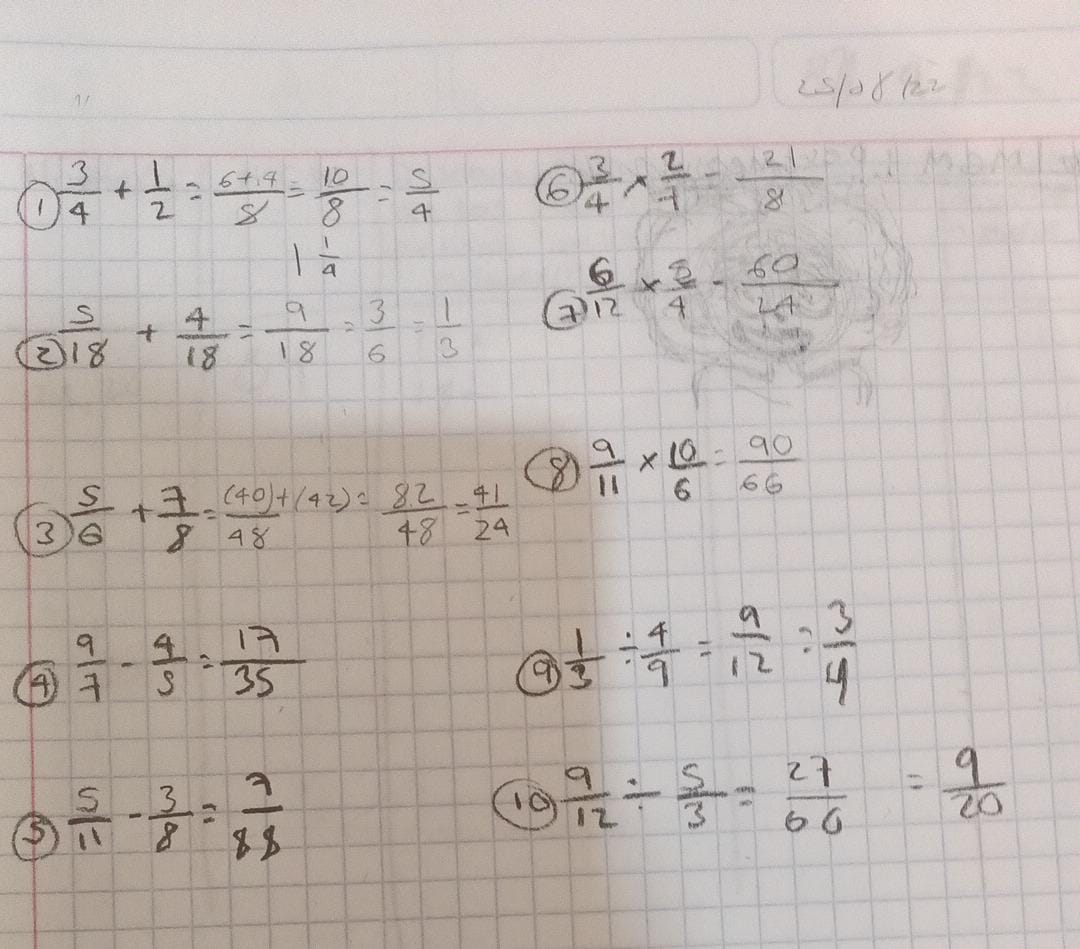 25/08/22
① 3/4 + 1/2 = 6+4/8 = 10/8 = 5/4
1 1/4
② 5/18 + 4/18 = 9/18 = 3/6 = 1/3
③ 5/6 + 7/8 = (40)+(42)/48 = 82/48 = 41/24
④ 9/7 - 4/5 = 17/35
⑤ 5/11 - 3/8 = 7/88
⑥ 3/4 × 2/7 = 21/8
⑦ 6/12 × 5/4 = 60/24
⑧ 9/11 × 10/6 = 90/66
⑨ 1/3 ÷ 4/9 = 9/12 = 3/4
⑩ 9/12 ÷ 5/3 = 27/60 = 9/20